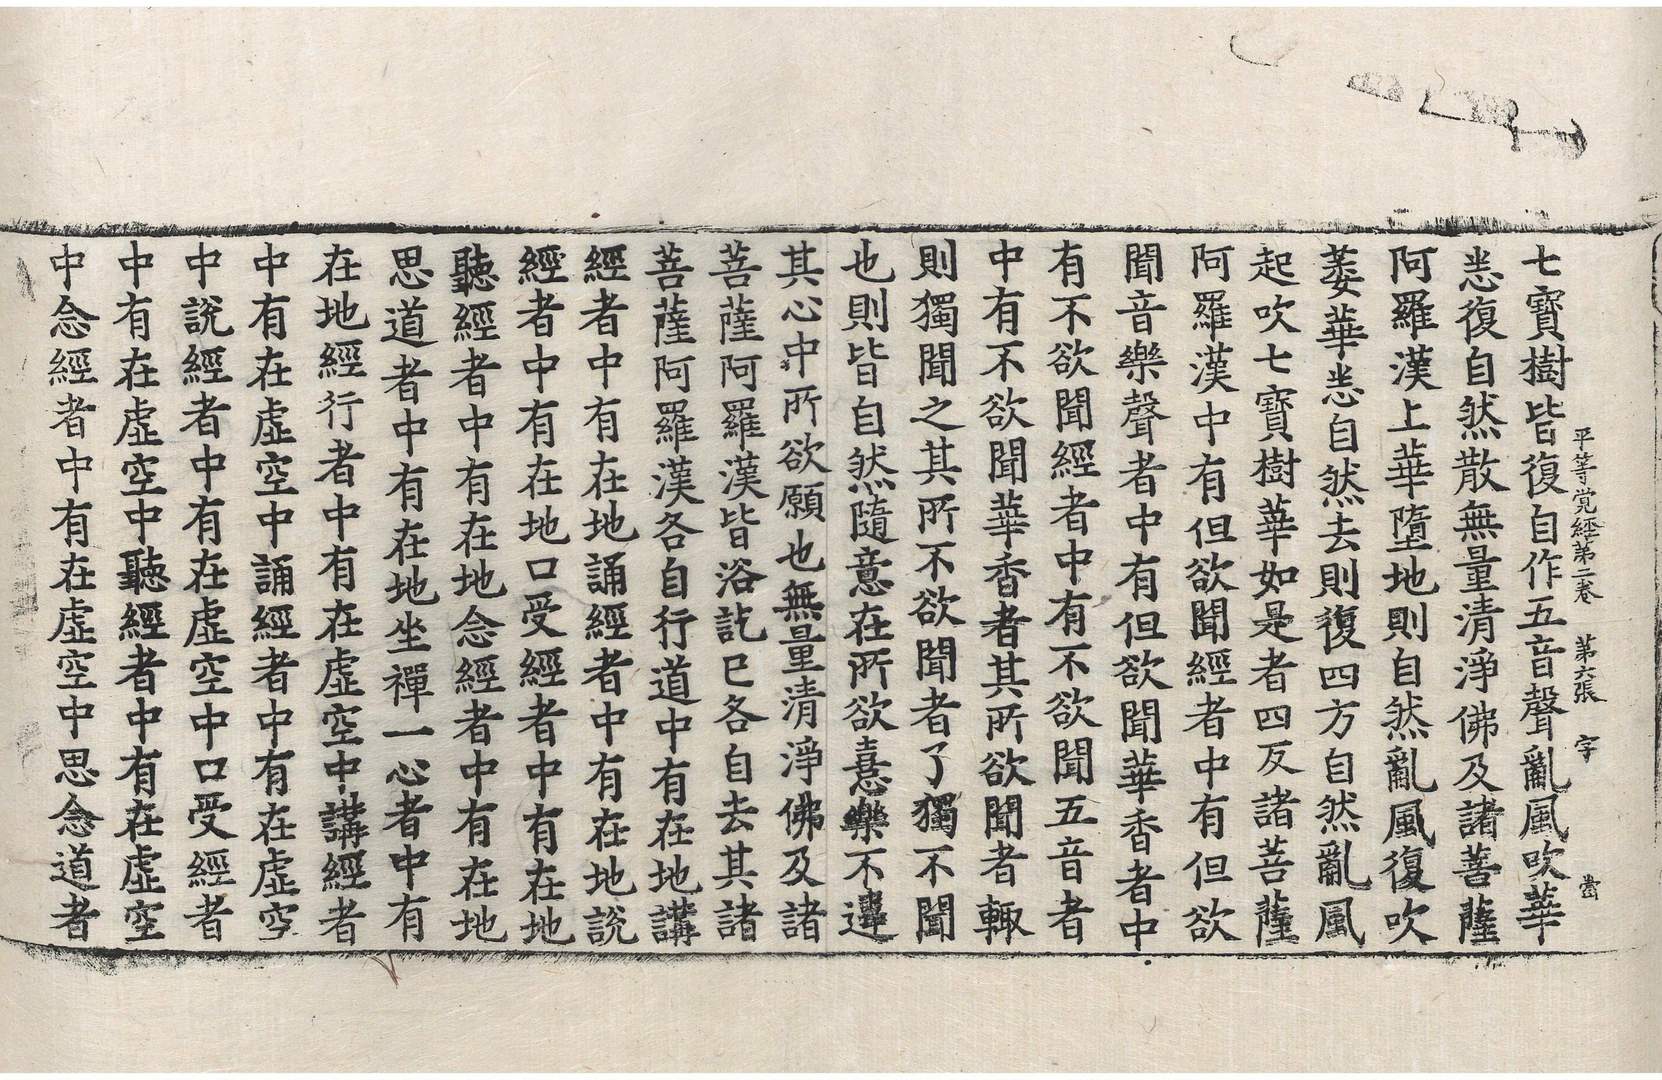 平等覺經第二卷 第六張 字
七寶樹皆復自作五音聲亂風吹華
悉復自然散無量清淨佛及諸菩薩
阿羅漢上華墮地則自然亂風復吹
萎華悉自然去則復四方自然亂風
起吹七寶樹華如是者四反諸菩薩
阿羅漢中有但欲聞經者中有但欲
聞音樂聲者中有但欲聞華香者中
有不欲聞經者中有不欲聞五音者
中有不欲聞華香者其所欲聞者輙
則獨聞之其所不欲聞者了獨不聞
也則皆自然隨意在所欲憙樂不違
其心中所欲願也無量清淨佛及諸
菩薩阿羅漢皆浴訖已各自去其諸
菩薩阿羅漢各自行道中有在地講
經者中有在地誦經者中有在地說
經者中有在地口受經者中有在地
聽經者中有在地念經者中有在地
思道者中有在地坐禪一心者中有
在地經行者中有在虛空中講經者
中有在虛空中誦經者中有在虛空
中說經者中有在虛空中口受經者
中有在虛空中聽經者中有在虛空
中念經者中有在虛空中思念道者